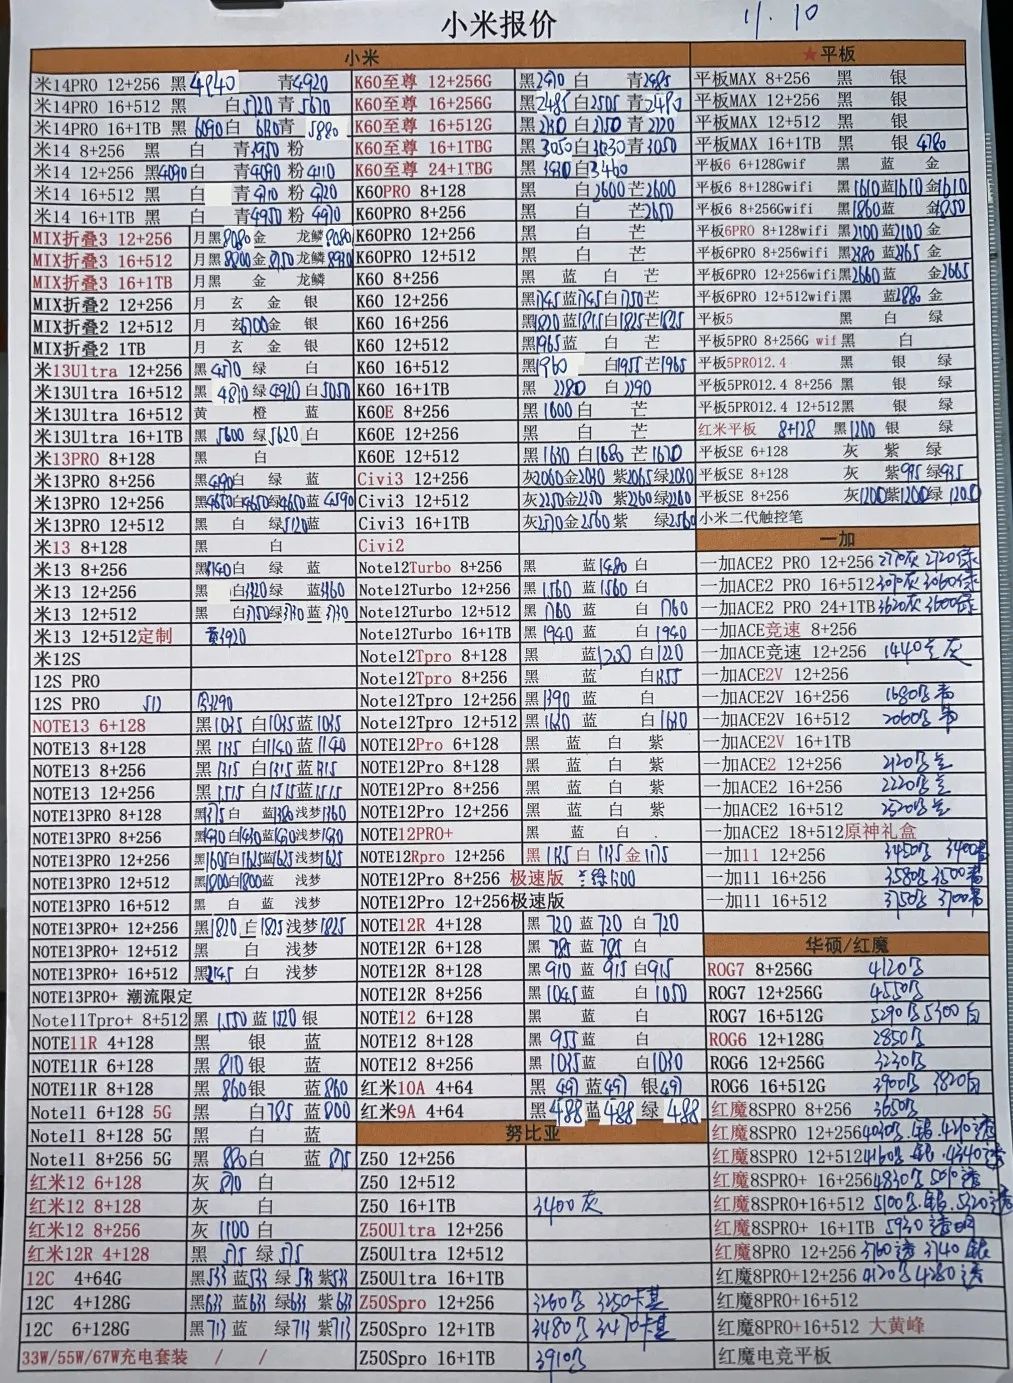 小米报价
11.10
小米
米14PRO 12+256 黑4840 青4920
米14PRO 16+512 黑 白5720 青5670
米14PRO 16+1TB 黑6090白 青5880
米14 8+256 黑 白 青3950 粉
米14 12+256 黑4090白 青4090 粉4110
米14 16+512 黑 青4710 粉4720
米14 16+1TB 黑 白 青4950 粉4970
MIX折叠3 12+256 月黑8080金 龙鳞8080
MIX折叠3 16+512 月黑8800金8750 龙鳞
MIX折叠3 16+1TB 月黑 金 龙鳞
MIX折叠2 12+256 月 玄 金 银
MIX折叠2 12+512 月 玄6700金 银
MIX折叠2 1TB 月 玄 金 银
米13Ultra 12+256 黑4570 绿 白
米13Ultra 16+512 黑 4870绿4920白5050
米13Ultra 16+512 黄 橙 蓝
米13Ultra 16+1TB 黑 5600 绿5620 白
米13PRO 8+128 黑 白
米13PRO 8+256 黑4190白 绿 蓝
米13PRO 12+256 黑4650白4650绿4650蓝4590
米13PRO 12+512 黑 白 绿5120蓝
米13 8+128 黑 白
米13 8+256 黑3140白 绿 蓝
米13 12+256 黑 白3320绿 蓝3360
米13 12+512 黑 白3750绿3730蓝3730
米13 12+512定制 黄3920
米12S
12S PRO
12S PRO 512
NOTE13 6+128 黑1035 白1035蓝1035
NOTE13 8+128 黑1135 白1140蓝1140
NOTE13 8+256 黑1315 白1315蓝1315
NOTE13 12+256 黑1515 白1515蓝1515
NOTE13PRO 8+128 黑1375白 蓝1380浅梦1360
NOTE13PRO 8+256 黑1430白1430蓝1430浅梦1430
NOTE13PRO 12+256 黑1605白1625蓝1625浅梦1625
NOTE13PRO 12+512 黑1800白1800蓝 浅梦
NOTE13PRO 16+512 黑 白 蓝 浅梦
NOTE13PRO+ 12+256 黑1820 白1825浅梦1825
NOTE13PRO+ 12+512 黑 白 浅梦
NOTE13PRO+ 16+512 黑2145 白 浅梦
NOTE13PRO+ 潮流限定
Note11Tpro+ 8+512 黑 1550蓝1520 银
NOTE11R 4+128 黑 银 蓝
NOTE11R 6+128 黑 810银 蓝
NOTE11R 8+128 黑 860银 蓝860
Note11 6+128 5G 黑 白785 蓝800
Note11 8+128 5G 黑 白 蓝
Note11 8+256 5G 黑 880白 蓝875
红米12 6+128 灰 870 白
红米12 8+128 灰 白
红米12 8+256 灰 1100白
红米12R 4+128 黑 575 绿575
12C 4+64G 黑533 蓝533 绿533 紫533
12C 4+128G 黑633 蓝633 绿633 紫633
12C 6+128G 黑713 蓝 绿713 紫713
33W/55W/67W充电套装 / /
K60至尊 12+256G 黑2470 白 青2485
K60至尊 16+256G 黑2485白2505 青2480
K60至尊 16+512G 黑2730白2750 青2720
K60至尊 16+1TBG 黑3050白3030青3050
K60至尊 24+1TBG 黑3430白3460
K60PRO 8+128 黑 白2600芒2600
K60PRO 8+256 黑 白 芒2650
K60PRO 12+256 黑 白 芒
K60PRO 12+512 黑 白 芒
K60 8+256 黑 蓝 白 芒
K60 12+256 黑1745蓝1745白1750芒
K60 16+256 黑1820蓝1815白1825芒1825
K60 12+512 黑1965蓝 白 芒
K60 16+512 黑1960 白1955芒1965
K60 16+1TB 黑 2280 白 2290
K60E 8+256 黑1600白 芒
K60E 12+256 黑 白 芒
K60E 12+512 黑1630 白1680芒1620
Civi3 12+256 灰2060金2030 紫2065绿2030
Civi3 12+512 灰2250金2250 紫2260绿2260
Civi3 16+1TB 灰2570金2560 紫 绿2560
Civi2
Note12Turbo 8+256 黑 蓝1480 白
Note12Turbo 12+256 黑1560 蓝1560 白
Note12Turbo 12+512 黑1760 蓝 白1760
Note12Turbo 16+1TB 黑1940 蓝 白1940
Note12Tpro 8+128 黑 蓝1200 白1220
Note12Tpro 8+256 黑 白1355
Note12Tpro 12+256 黑1390 蓝 白
Note12Tpro 12+512 黑1630 蓝 白1630
NOTE12Pro 6+128 黑 蓝 白 紫
NOTE12Pro 8+128 黑 蓝 白 紫
NOTE12Pro 8+256 黑 蓝 白 紫
NOTE12Pro 12+256 黑 蓝 白 紫
NOTE12PRO+ 黑 蓝 白
NOTE12Rpro 12+256 黑1135白1135金1175
NOTE12Pro 8+256 极速版 1300
NOTE12Pro 12+256极速版
NOTE12R 4+128 黑720 蓝720 白720
NOTE12R 6+128 黑785 蓝785 白
NOTE12R 8+128 黑910 蓝915 白915
NOTE12R 8+256 黑1045 蓝 白1050
NOTE12 6+128 黑 蓝 白
NOTE12 8+128 黑 955 蓝 白
NOTE12 8+256 黑 1035蓝 白1030
红米10A 4+64 黑 497 蓝497 银497
红米9A 4+64 黑488蓝488 绿488
努比亚
Z50 12+256
Z50 12+512
Z50 16+1TB 3400灰
Z50Ultra 12+256
Z50Ultra 12+512
Z50Ultra 16+1TB
Z50Spro 12+256 3260 3250卡其
Z50Spro 12+1TB 3480 3470卡其
Z50Spro 16+1TB 3910
★平板
平板MAX 8+256 黑 银
平板MAX 12+256 黑 银
平板MAX 12+512 黑 银
平板MAX 16+1TB 黑 银4780
平板6 6+128Gwif 黑 蓝 金
平板6 8+128Gwifi 黑1610蓝1610金1610
平板6 8+256Gwifi 黑1860蓝 金1850
平板6PRO 8+128wifi 黑2100蓝2100金
平板6PRO 8+256wifi 黑2380蓝2365金
平板6PRO 12+256wifi黑2660蓝 金2665
平板6PRO 12+512wifi黑 蓝2880 金
平板5 黑 白 绿
平板5PRO 8+256G wif 黑 白
平板5PRO12.4 黑 银 绿
平板5PRO12.4 8+256 黑 银 绿
平板5PRO12.4 12+512黑 银 绿
红米平板 8+128 黑1200 银 绿
平板SE 6+128 灰 紫 绿
平板SE 8+128 灰 紫995绿995
平板SE 8+256 灰1200紫1200绿1205
小米二代触控笔
一加
一加ACE2 PRO 12+256 2770灰 2720绿
一加ACE2 PRO 16+512 3070灰 3060绿
一加ACE2 PRO 24+1TB 3620灰 3600绿
一加ACE竞速 8+256
一加ACE竞速 12+256 1440 灰
一加ACE2V 12+256
一加ACE2V 16+256 1680
一加ACE2V 16+512 2060
一加ACE2V 16+1TB
一加ACE2 12+256 2120
一加ACE2 16+256 2220
一加ACE2 16+512 2520
一加ACE2 18+512原神礼盒
一加11 12+256 3450 3400
一加11 16+256 3580 3500
一加11 16+512 3750 3700
华硕/红魔
ROG7 8+256G 4120
ROG7 12+256G 4550
ROG7 16+512G 5290 5300白
ROG6 12+128G 2850
ROG6 12+256G 3230
ROG6 16+512G 3900 3820白
红魔8SPRO 8+256 3650
红魔8SPRO 12+256 4030 银 4210透
红魔8SPRO 12+512 4160 银 4340透
红魔8SPRO+ 16+256 4830 5010透
红魔8SPRO+16+512 5100 银 5320透
红魔8SPRO+ 16+1TB 5930透明
红魔8PRO 12+256 3760透 3740银
红魔8PRO+12+256 4120 4280透
红魔8PRO+16+512
红魔8PRO+16+512 大黄峰
红魔电竞平板